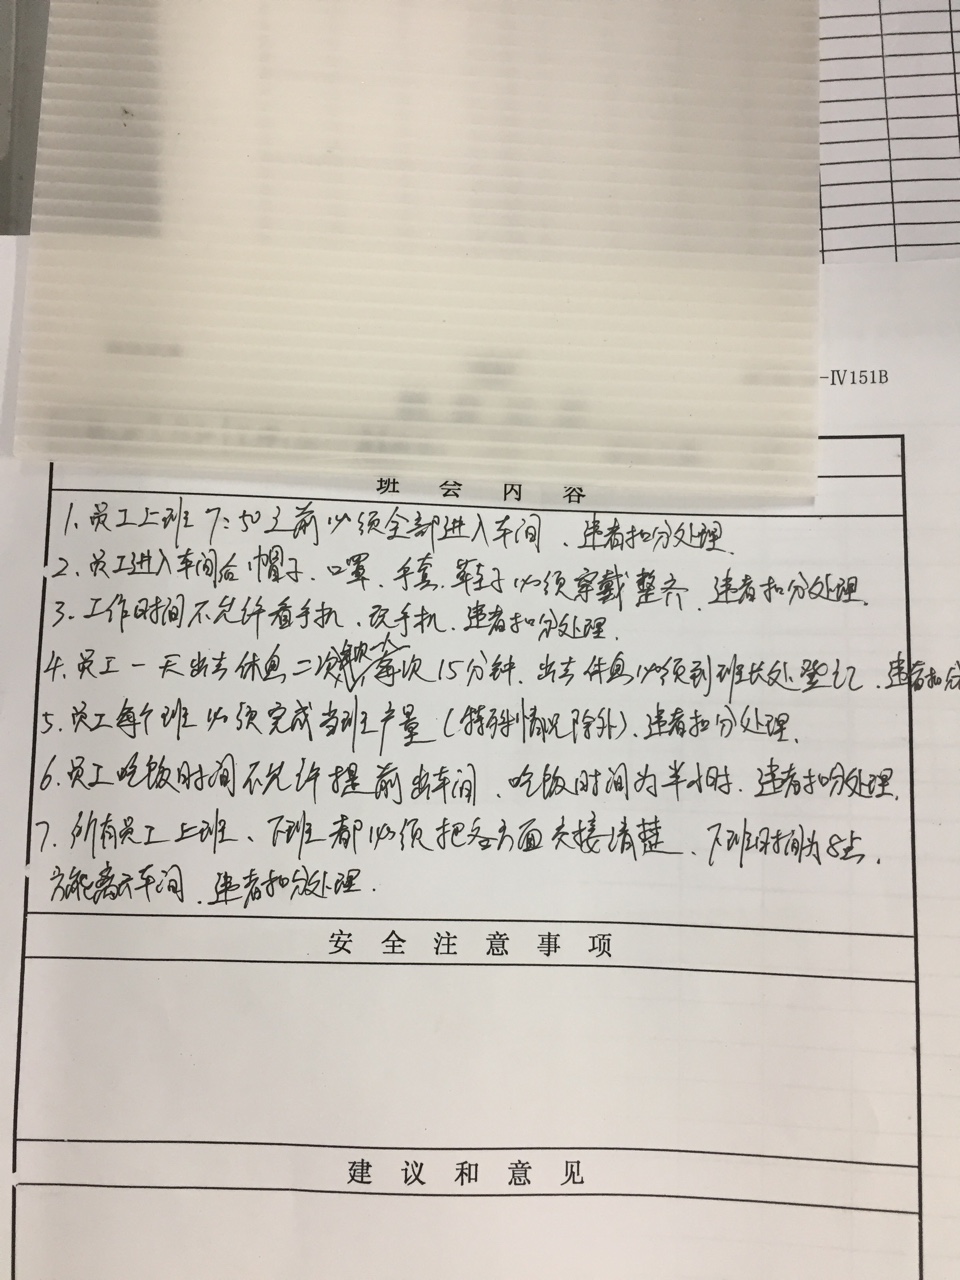 -Ⅳ151B
班会内容
1. 员工上班7:50之前必须全部进入车间、违者扣分处理.
2、员工进入车间后帽子、口罩、手套、鞋子必须穿戴整齐、违者扣分处理.
3. 工作时间不允许看手机、玩手机、违者扣分处理.
4. 员工一天出去休息二次 每次15分钟. 出去休息必须到班长处登记、违者扣分
5、员工每个班必须完成当班产量(特殊情况除外)、违者扣分处理.
6、员工吃饭时间不允许提前出车间、吃饭时间为半小时. 违者扣分处理.
7. 所有员工上班、下班都必须把各方面交接清楚、下班时间为8点,
方能离开车间、违者扣分处理.
安全注意事项
建议和意见